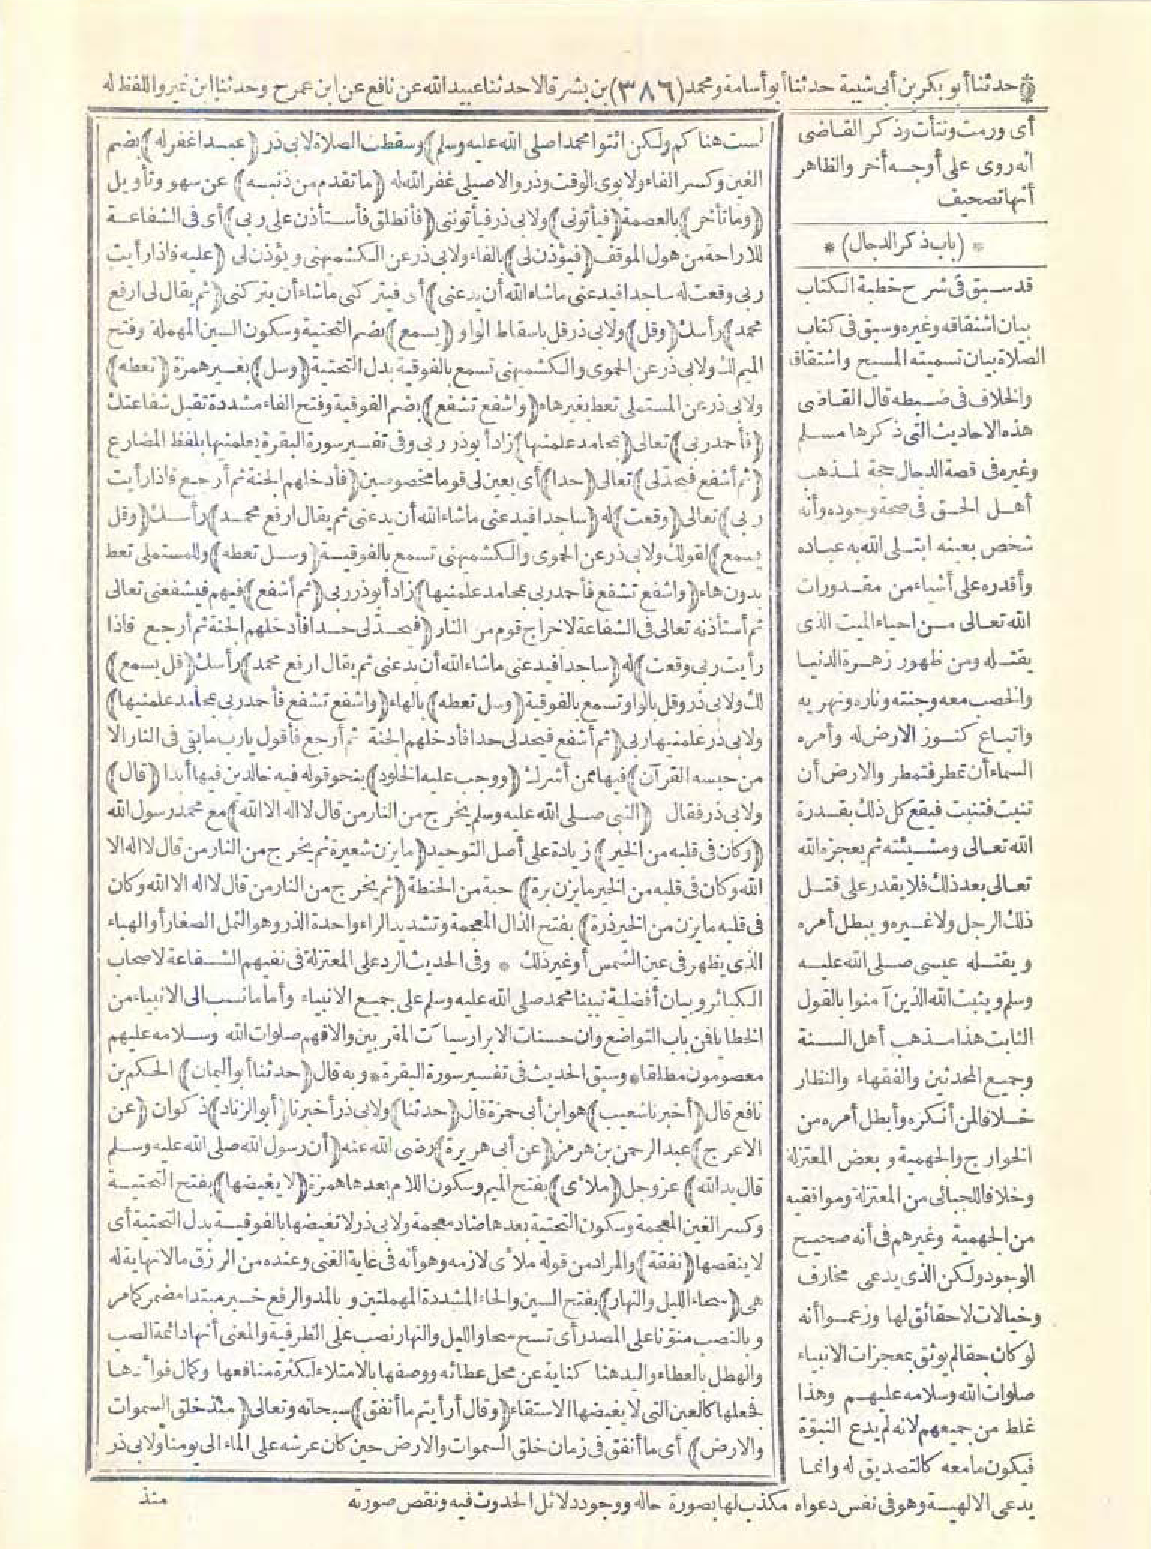 حدثنا أبو بكر بن أبي شيبة حدثنا أبو أسامة ومحمد (٣٨٦) بن بشر قالا حدثنا عبيد الله عن نافع عن ابن عمر ح وحدثنا ابن نمير واللفظ له
لست هناكم ولكن ائتوا محمدا صلى الله عليه وسلم) وسقطت الصلاة لابي ذر (عبدا غفر له) بضم
الغين وكسر الفاء ولابوي الوقت وذر والاصيلي غفر الله له (ما تقدم من ذنبه) عن سهو وتأويل
(وما تأخر) بالعصمة (فيأتوني) ولابي ذر فيأتونني (فأنطلق فأستأذن على ربي) أي في الشفاعة
للاراحة من هول الموقف (فيؤذن لي) بالفاء ولابي ذر عن الكشميهني ويؤذن لي (عليه فاذا رأيت
ربي وقعت له ساجدا فيدعني ماشاء الله أن يدعني) أي فيتركني ماشاء أن يتركني (ثم يقال لي ارفع
محمد) رأسك (وقل) ولابي ذر قل باسقاط الواو (يسمع) بضم التحتية وسكون السين المهملة وفتح
الميم لك ولابي ذر عن الحموي والكشميهني تسمع بالفوقية بدل التحتية (وسل) بغير همزة (تعطه)
ولابي ذر عن المستملي تعط بغير هاء (واشفع تشفع) بضم الفوقية وفتح الفاء مشددة تقبل شفاعتك
(فأحمد ربي) تعالى (بمحامد علمنيها) زاد أبو ذر ربي وفي تفسير سورة البقرة يعلمنيها بلفظ المضارع
(ثم أشفع فيحد لي) تعالى (حدا) أي يعين لي قوما مخصوصين (فأدخلهم الجنة ثم أرجع فاذا رأيت
ربي) تعالى (وقعت) له (ساجدا فيدعني ماشاء الله أن يدعني ثم يقال ارفع محمد) رأسك (وقل
يسمع) لقولك ولابي ذر عن الحموي والكشميهني تسمع بالفوقية (وسل تعطه) وللمستملي تعط
بدون هاء (واشفع تشفع فأحمد ربي بمحامد علمنيها) زاد أبو ذر ربي (ثم أشفع) فيهم فيشفعني تعالى
ثم أستأذنه تعالى في الشفاعة لاخراج قوم من النار (فيحد لي حدا فأدخلهم الجنة ثم أرجع فاذا
رأيت ربي وقعت) له (ساجدا فيدعني ماشاء الله أن يدعني ثم يقال ارفع محمد) رأسك (قل يسمع)
لك ولابي ذر وقل بالواو تسمع بالفوقية (وسل تعطه) بالهاء (واشفع تشفع فأحمد ربي بمحامد علمنيها)
ولابي ذر علمنيها ربي (ثم أشفع فيحد لي حدا فأدخلهم الجنة ثم أرجع فأقول يارب مابقي في النار الا
من حبسه القرآن) فيها ممن أشرك (ووجب عليه الخلود) بنحو قوله فيه خالدين فيها أبدا (قال)
ولابي ذر فقال (النبي صلى الله عليه وسلم يخرج من النار من قال لا اله الا الله) مع محمد رسول الله
(وكان في قلبه من الخير) زيادة على أصل التوحيد (مايزن شعيرة ثم يخرج من النار من قال لا اله الا
الله وكان في قلبه من الخير مايزن برة) حبة من الحنطة (ثم يخرج من النار من قال لا اله الا الله وكان
في قلبه مايزن من الخير ذرة) بفتح الذال المعجمة وتشديد الراء واحدة الذر وهو النمل الصغار أو الهباء
الذي يظهر في عين الشمس أو غير ذلك * وفي الحديث الرد على المعتزلة في نفيهم الشفاعة لاصحاب
الكبائر وبيان أفضلية نبينا محمد صلى الله عليه وسلم على جميع الانبياء وأما مانسب الى الانبياء من
الخطايا فمن باب التواضع وان حسنات الابرار سيآت المقربين والا فهم صلوات الله وسلامه عليهم
معصومون مطلقا * وسبق الحديث في تفسير سورة البقرة * وبه قال (حدثنا أبو اليمان) الحكم بن
نافع قال (أخبرنا شعيب) هو ابن أبي حمزة قال (حدثنا) ولابي ذر أخبرنا (أبو الزناد) ذكوان (عن
الاعرج) عبد الرحمن بن هرمز (عن أبي هريرة) رضي الله عنه (أن رسول الله صلى الله عليه وسلم
قال يد الله) عز وجل (ملأى) بفتح الميم وسكون اللام بعدها همزة (لا يغيضها) بفتح التحتية
وكسر الغين المعجمة وسكون التحتية بعدها ضاد معجمة ولابي ذر لا تغيضها بالفوقية بدل التحتية أي
لا ينقصها (نفقة) والمراد من قوله ملأى لازمه وهو أنه في غاية الغنى وعنده من الرزق مالانهاية له
هي (سحاء الليل والنهار) بفتح السين والحاء المشددة المهملتين وبالمد والرفع خبر مبتدا مضمر كما مر
وبالنصب منونا على المصدر أي تسح سحا والليل والنهار نصب على الظرفية والمعنى أنها دائمة الصب
والهطل بالعطاء واليد هنا كناية عن محل عطائه ووصفها بالامتلاء لكثرة منافعها وكمال فوائدها
فجعلها كالعين التي لا يغيضها الاستقاء (وقال أرأيتم ما أنفق) سبحانه وتعالى (منذ خلق السموات
والارض) أي ما أنفق في زمان خلق السموات والارض حين كان عرشه على الماء الى يومنا ولابي ذر
منذ
أي ورمت ونتأت وذكر القاضي
أنه روي على أوجه أخر والظاهر
أنها تصحيف
* (باب ذكر الدجال) *
قد سبق في شرح خطبة الكتاب
بيان اشتقاقه وغيره وسبق في كتاب
الصلاة بيان تسميته المسيح واشتقاقه
والخلاف في ضبطه قال القاضي
هذه الاحاديث التي ذكرها مسلم
وغيره في قصة الدجال حجة لمذهب
أهل الحق في صحة وجوده وأنه
شخص بعينه ابتلى الله به عباده
وأقدره على أشياء من مقدورات
الله تعالى من احياء الميت الذي
يقتله ومن ظهور زهرة الدنيا
والخصب معه وجنته وناره ونهريه
واتباع كنوز الارض له وأمره
السماء أن تمطر فتمطر والارض أن
تنبت فتنبت فيقع كل ذلك بقدرة
الله تعالى ومشيئته ثم يعجزه الله
تعالى بعد ذلك فلا يقدر على قتل
ذلك الرجل ولا غيره ويبطل أمره
ويقتله عيسى صلى الله عليه
وسلم ويثبت الله الذين آمنوا بالقول
الثابت هذا مذهب أهل السنة
وجميع المحدثين والفقهاء والنظار
خلافا لمن أنكره وأبطل أمره من
الخوارج والجهمية وبعض المعتزلة
وخلافا للجبائي من المعتزلة وموافقيه
من الجهمية وغيرهم في أنه صحيح
الوجود ولكن الذي يدعي مخارف
وخيالات لا حقائق لها وزعموا أنه
لو كان حقا لم يوثق بمعجزات الانبياء
صلوات الله وسلامه عليهم وهذا
غلط من جميعهم لانه لم يدع النبوة
فيكون مامعه كالتصديق له وانما
يدعي الالهية وهو في نفس دعواه مكذب لها بصورة حاله ووجود دلائل الحدوث فيه ونقص صورته